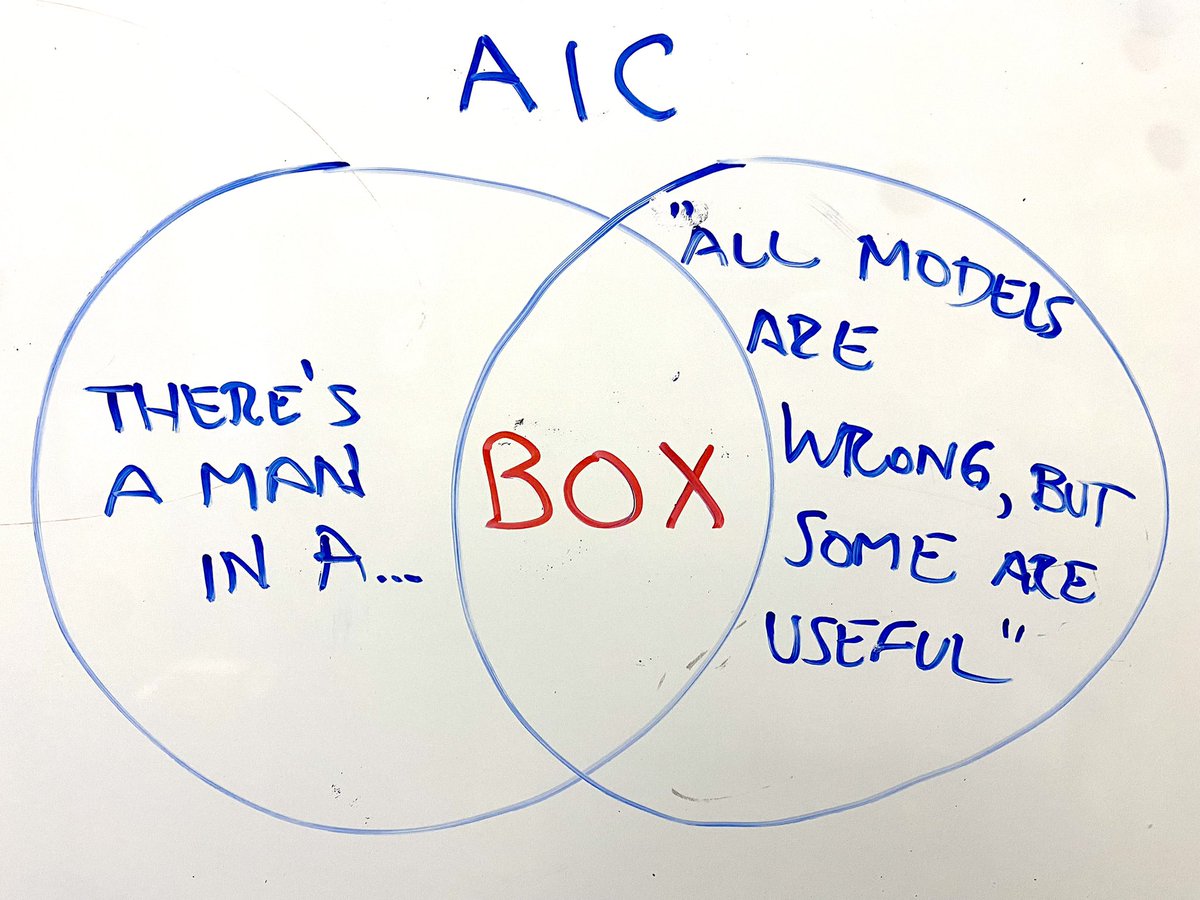 AIC
THERE'S
A MAN
IN A...
BOX
"ALL MODELS
ARE
WRONG, BUT
SOME ARE
USEFUL"